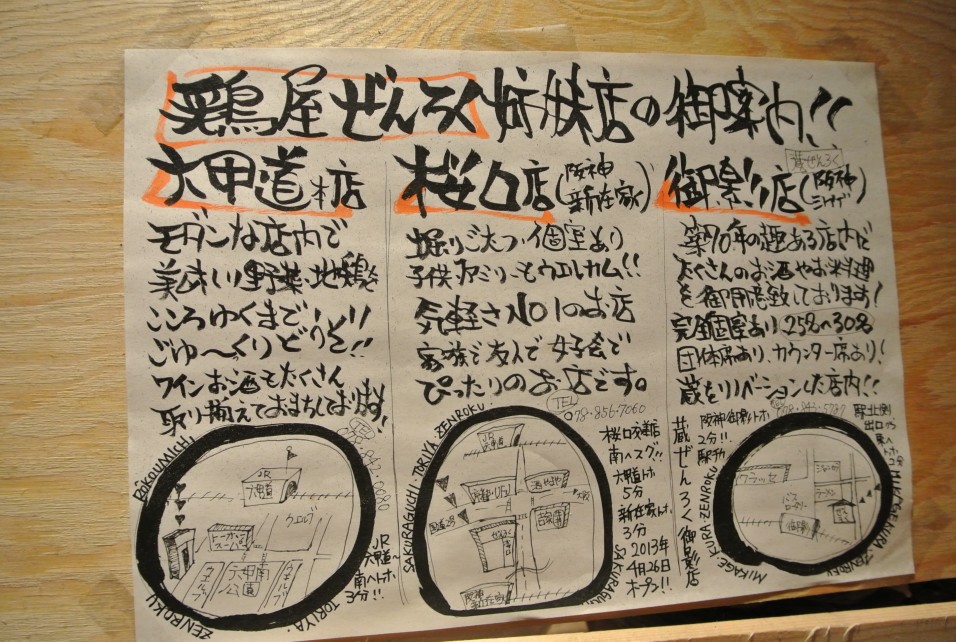 鶏屋ぜんろく姉妹店の御案内!!
六甲道本店
モダンな店内で
美味しい野菜、地鶏を
こころゆくまで
ごゆ〜くりどうぞ!!
ワインお酒もたくさん
取り揃えておまちしております!
ROKOUMICHI
JR
六甲道
ウエルブ
六甲南
公園
JR
六甲道〜
南へトホ
3分!!
ZENROKU
TORIYA:
桜口店(阪神
新在家)
掘りごたつ・個室あり
子供、ファミリーもウエルカム!!
気軽さNO1のお店
家族で友人で女子会で
ぴったりのお店です。
TEL
078-856-7060
SAKURAGUCHI・TORIYA ZENROKU・
JR
六甲道
吉野家
阪神
新在家
桜口交差店
南へスグ!!
六甲道トホ
5分
新在家トホ
3分
2013年
4月26日
オープン!!
御影店(阪神
蔵ぜんろく
築70年の趣ある店内で
たくさんのお酒やお料理
を御用意致しております!
完全個室あり 25名〜30名
団体席あり、カウンター席あり!
蔵をリノベーションした店内!!
阪神御影トホ
2分!!
駅北側
出口から
東へ
蔵ぜんろく御影店
MIKAGE: KURA ZENROKU
クラッセ
バス
ロータリー
ラーメン
御影